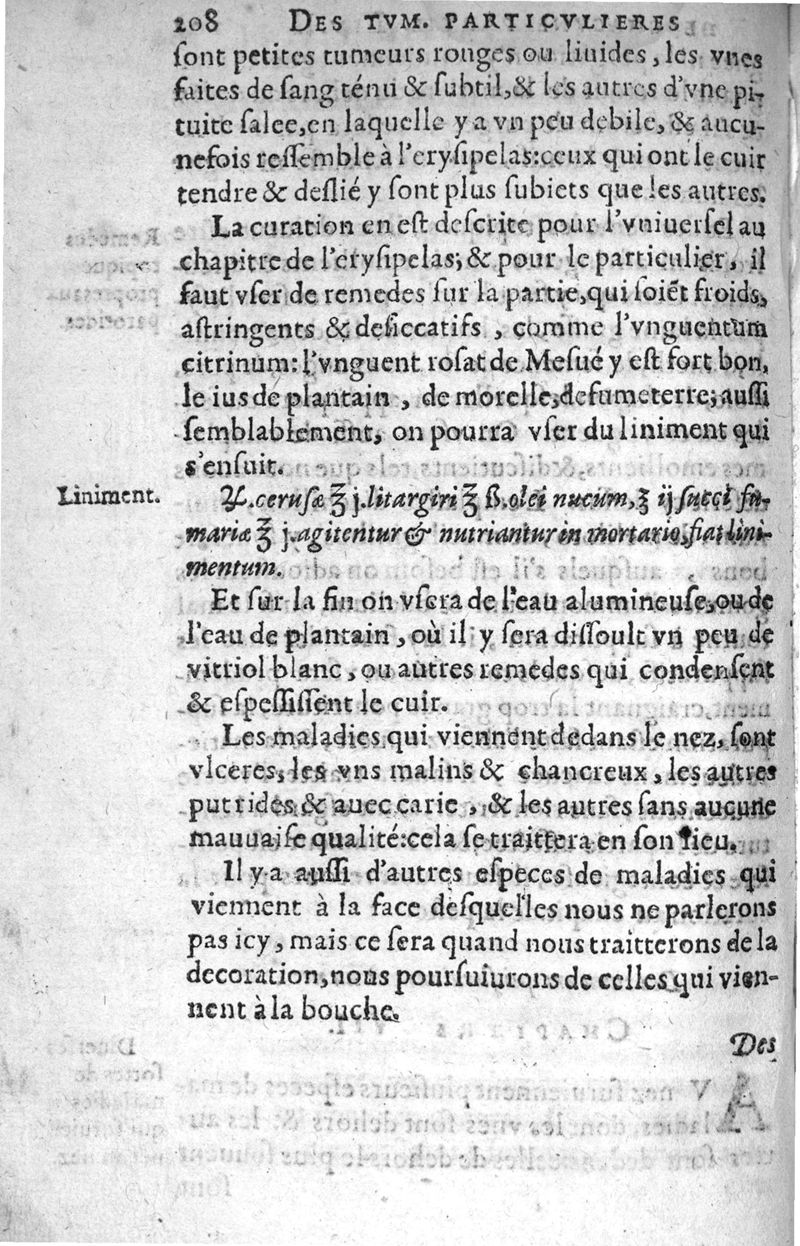 208 DES TVM. PARTICVLIERES
ſont petites tumeurs rouges ou liuides, les vnes
faites de ſang ténu & ſubtil, & les autres d'vne pi-
tuite ſalee, en laquelle y a vn peu debile, & aucu-
nefois reſſemble à l'eryſipelas: ceux qui ont le cuir
tendre & deſlié y ſont plus ſubiets que les autres.
La curation en eſt deſcrite pour l'vniuerſel au
chapitre de l'eryſipelas; & pour le particulier, il
faut vſer de remedes ſur la partie, qui ſoiẽt froids,
aſtringents & deſiccatifs, comme l'vnguentum
citrinum: l'vnguent roſat de Meſué y eſt fort bon,
le ius de plantain, de morelle, de fumeterre; auſſi
ſemblablement, on pourra vſer du liniment qui
s'enſuit.
Liniment.
℞. ceruſæ ℥ j. litargiri ℥ ß. olei nucum, ʒ ij ſucci fu-
mariæ ℥ j. agitentur & nutriantur in mortario, fiat lini-
mentum.
Et ſur la fin on vſera de l'eau alumineuſe, ou de
l'eau de plantain, où il y ſera diſſoult vn peu de
vitriol blanc, ou autres remedes qui condenſent
& eſpeſſiſſent le cuir.
Les maladies qui viennent dedans le nez, ſont
vlceres, les vns malins & chancreux, les autres
putrides & auec carie, & les autres ſans aucune
mauuaiſe qualité: cela ſe traittera en ſon lieu.
Il y a auſſi d'autres eſpeces de maladies qui
viennent à la face deſquelles nous ne parlerons
pas icy, mais ce ſera quand nous traitterons de la
decoration, nous pourſuiurons de celles qui vien-
nent à la bouche.
Des